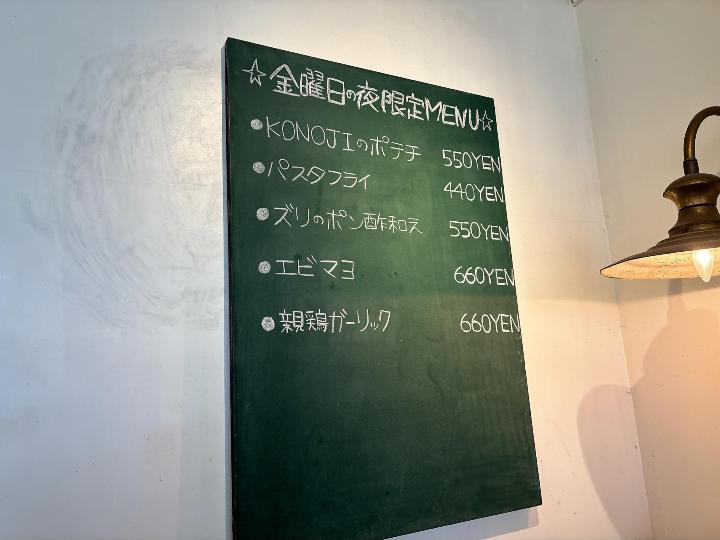 ☆金曜日の夜限定MENU☆
●KONOJIのポテチ 550YEN
●パスタフライ 440YEN
●ズリのポン酢和え 550YEN
●エビマヨ 660YEN
●親鶏ガーリック 660YEN